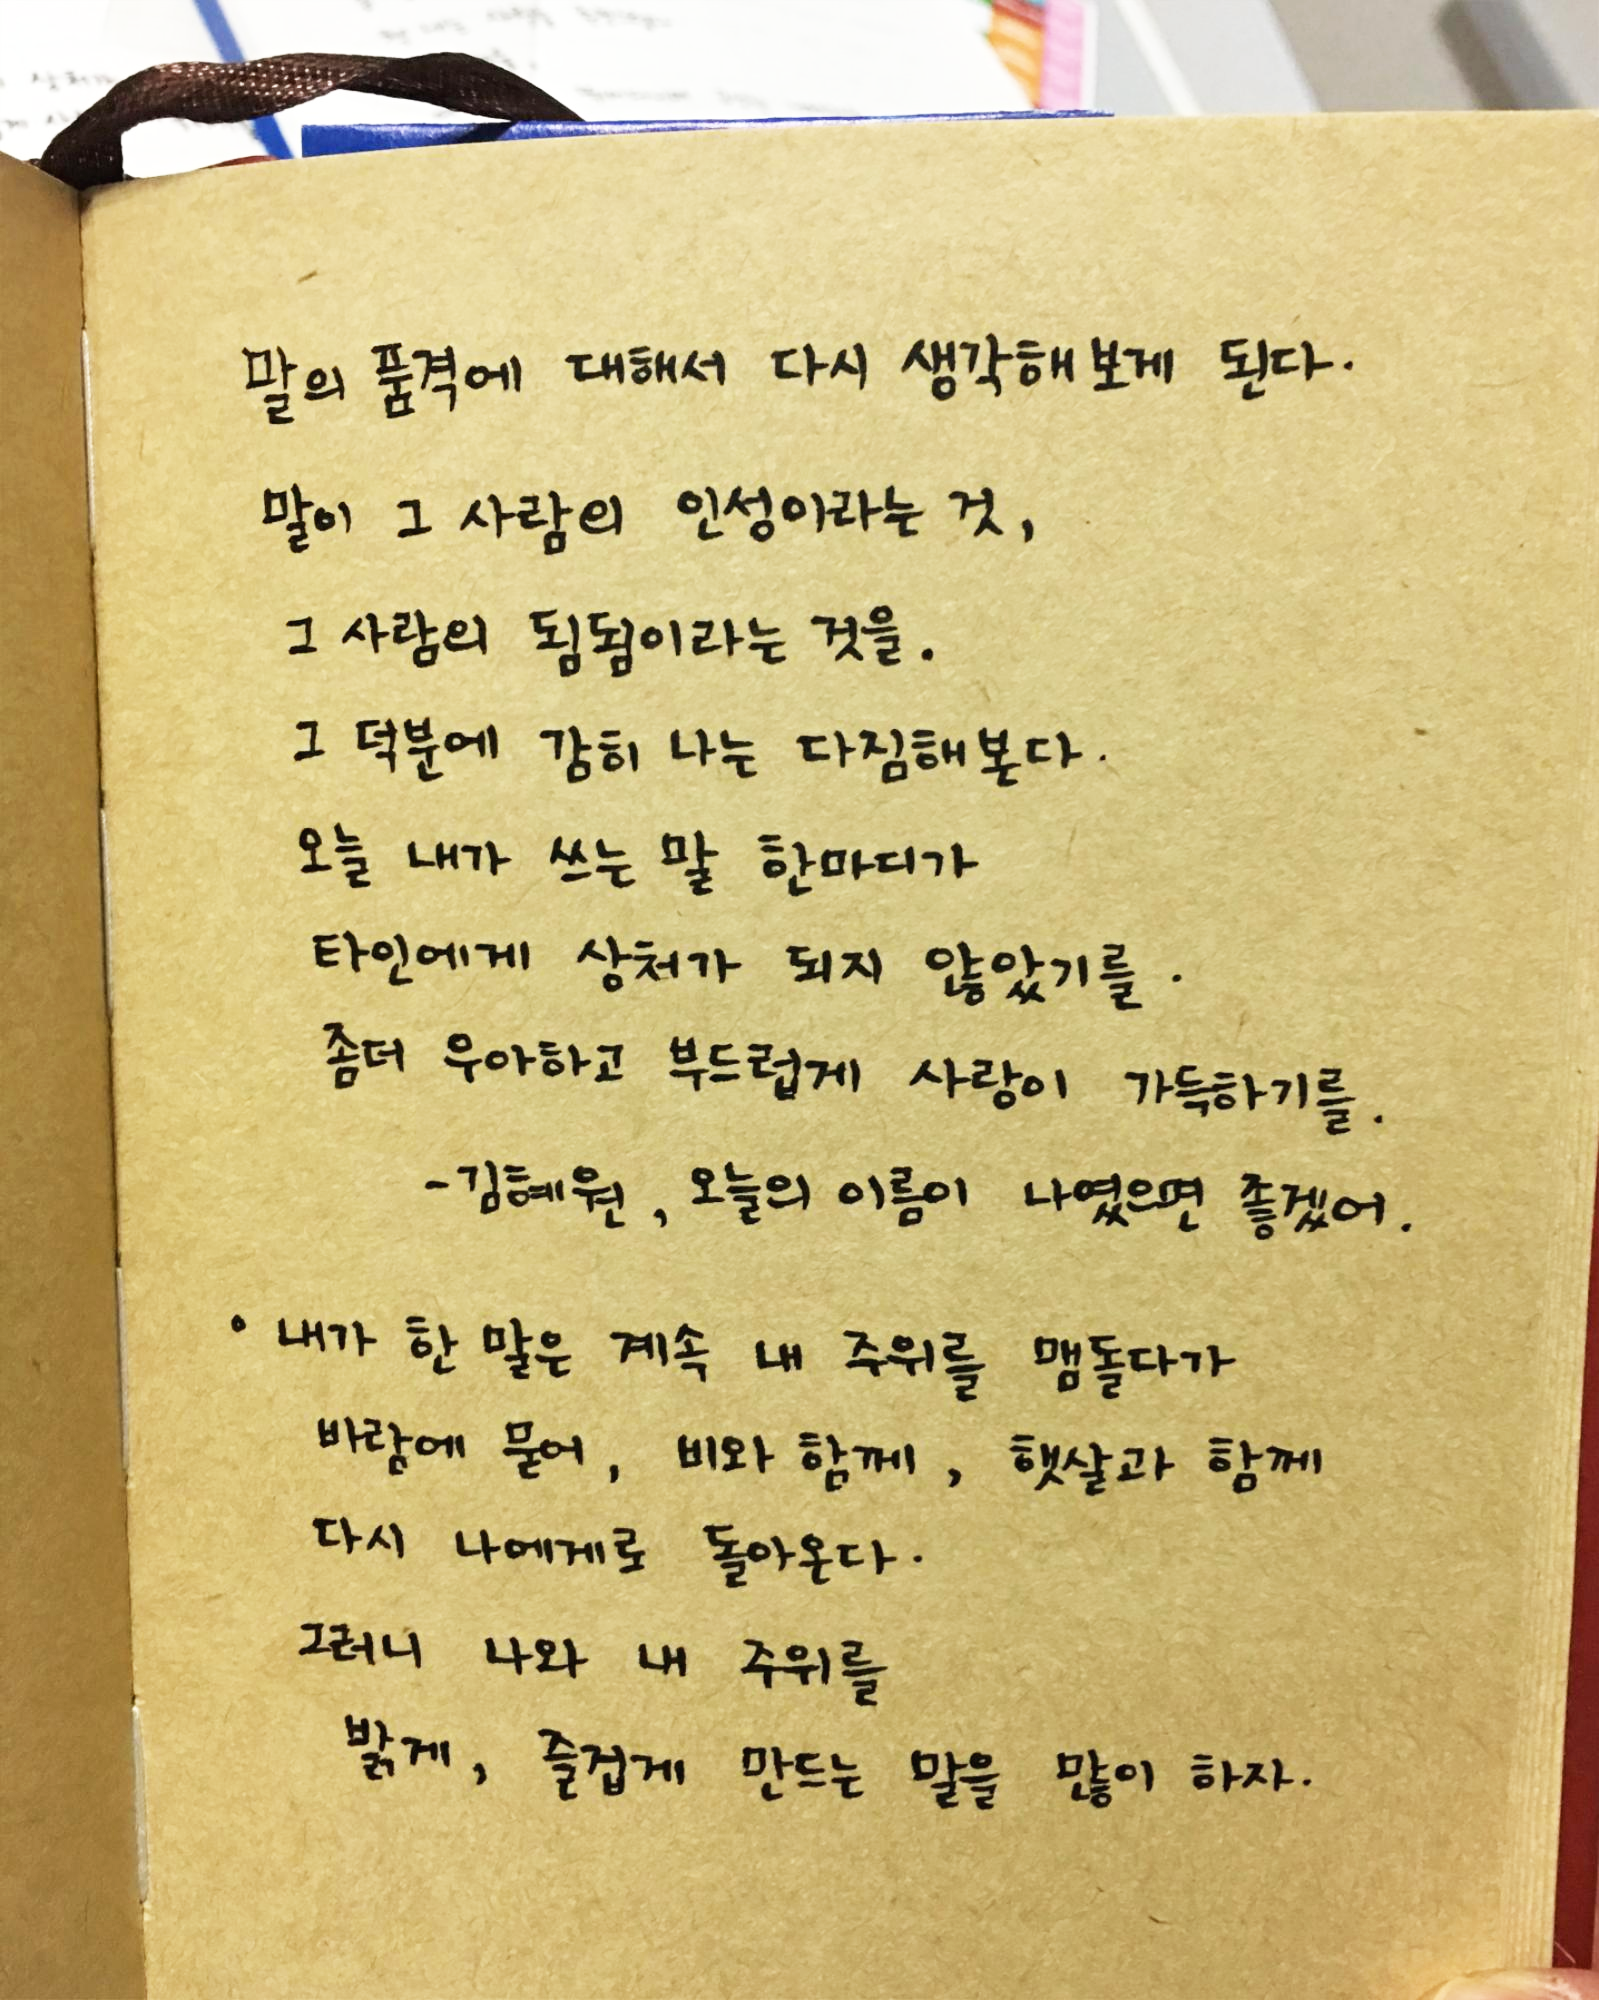 말의 품격에 대해서 다시 생각해보게 된다.
말이 그 사람의 인성이라는 것,
그 사람의 됨됨이라는 것을.
그 덕분에 감히 나는 다짐해본다.
오늘 내가 쓰는 말 한마디가
타인에게 상처가 되지 않았기를.
좀더 우아하고 부드럽게 사랑이 가득하기를.
-김혜원, 오늘의 이름이 나였으면 좋겠어.
• 내가 한 말은 계속 내 주위를 맴돌다가
바람에 묻어, 비와 함께, 햇살과 함께
다시 나에게로 돌아온다.
그러니 나와 내 주위를
밝게, 즐겁게 만드는 말을 많이 하자.